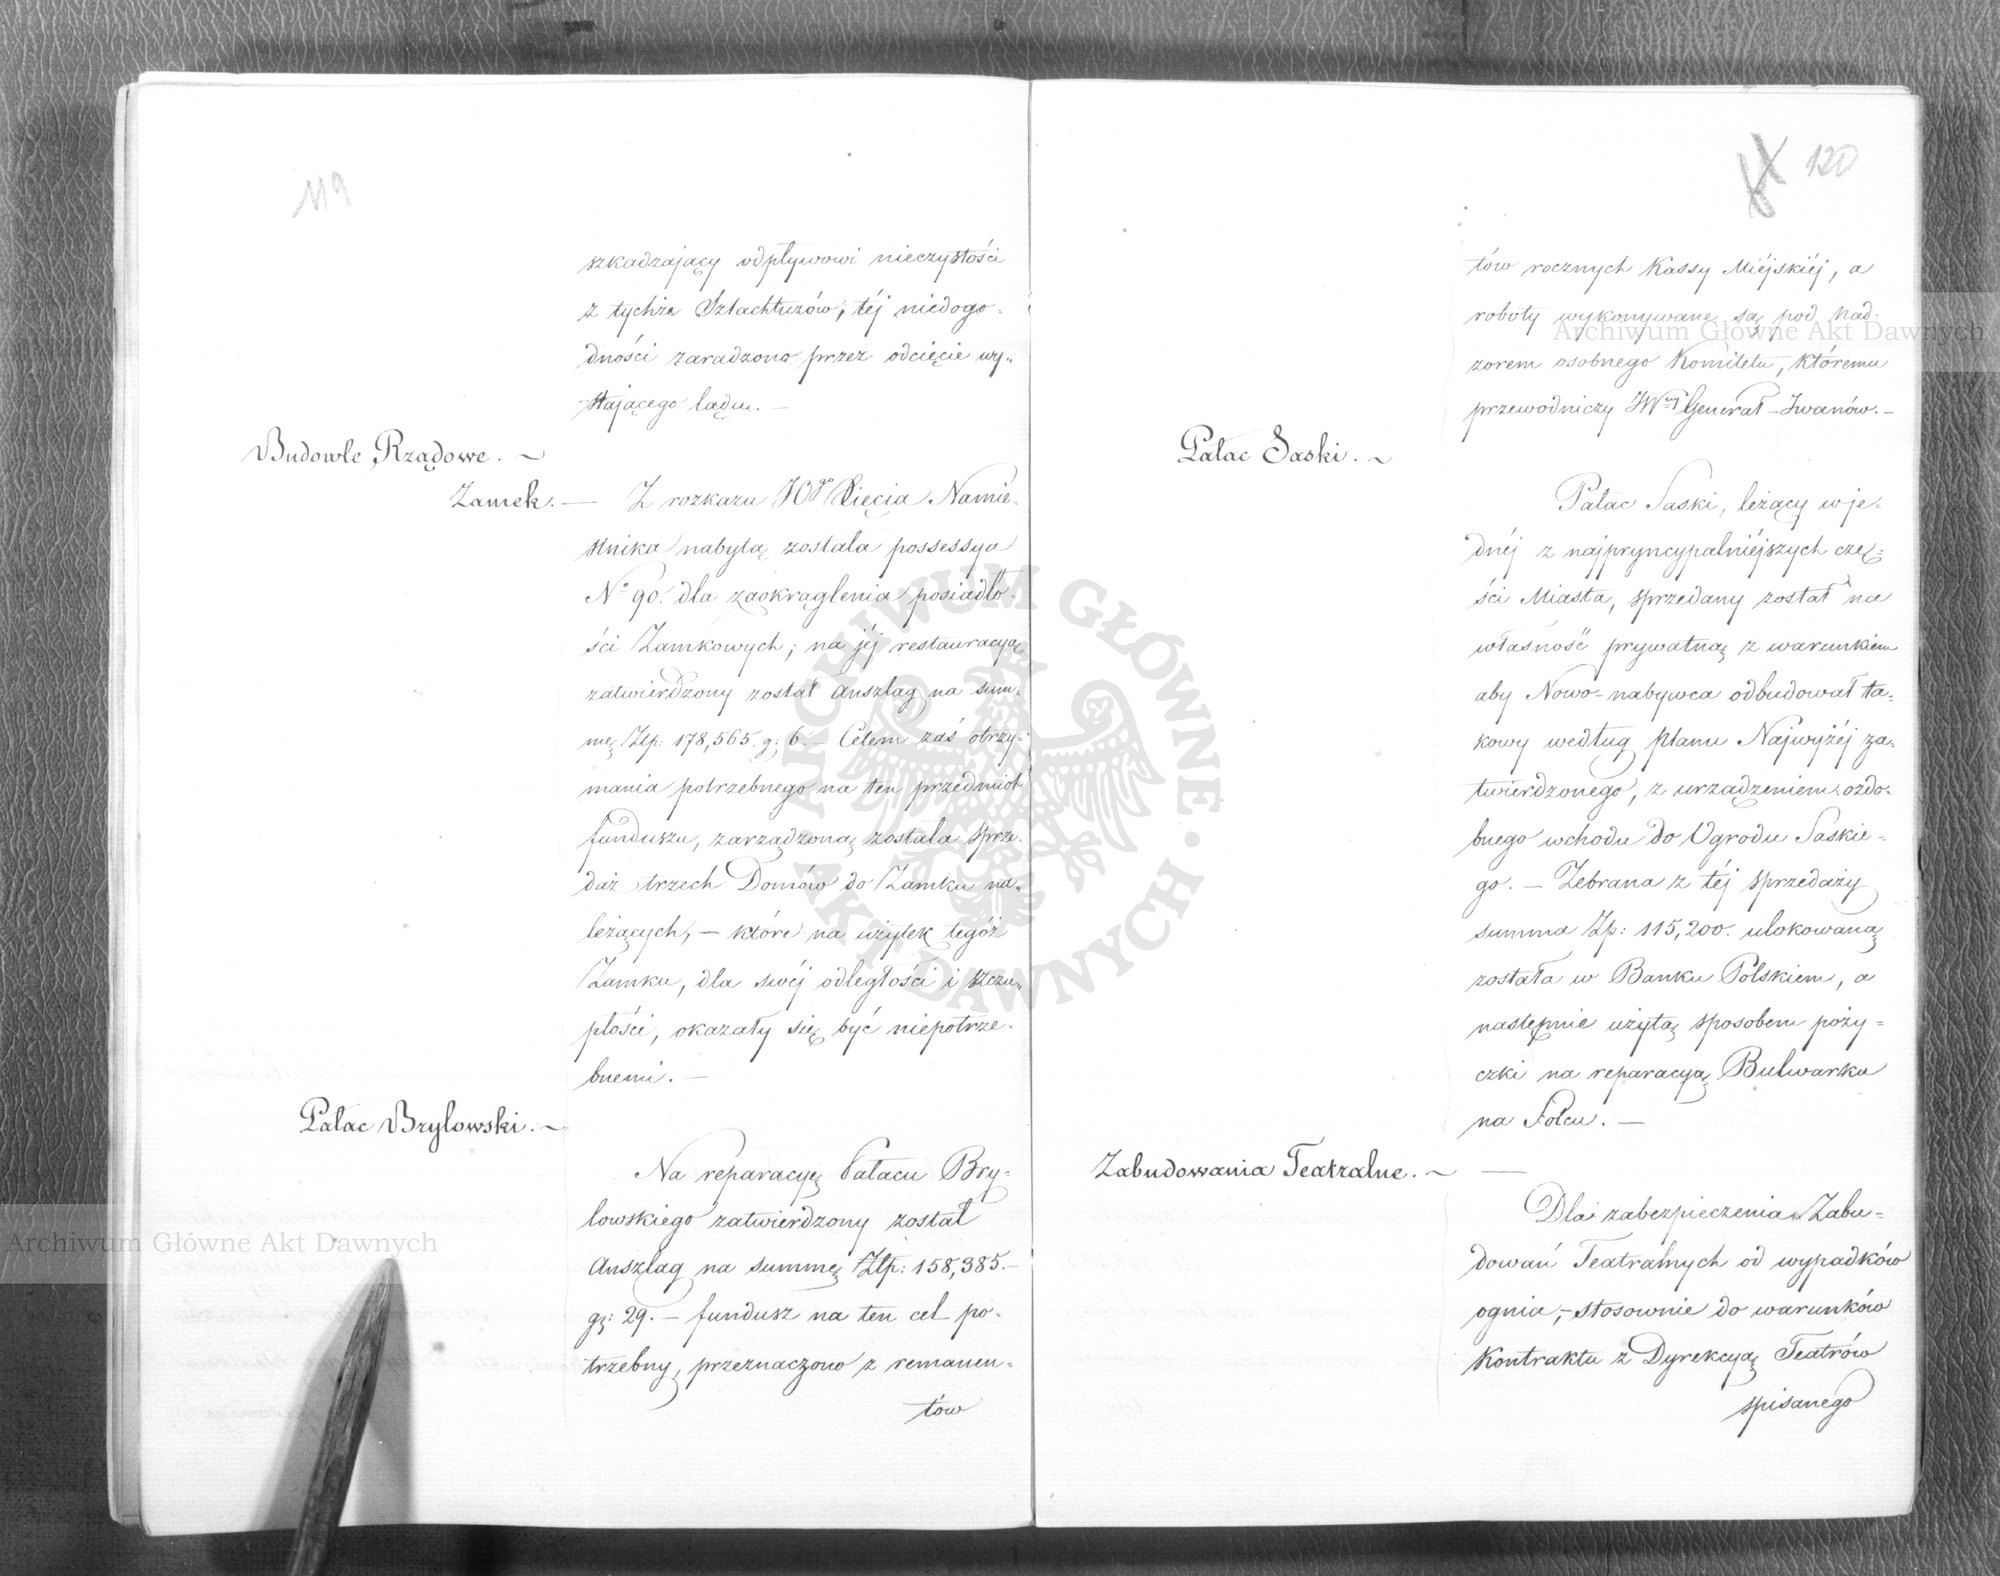 119
szkadzający odpływowi nieczystości
z tychże Szlachtuzów; téj niedogo-
dności zaradzono przez odcięcie wy-
stającego lądu. —
Budowle Rządowe. ~
Zamek. —
Z rozkazu JO Xięcia Namie-
stnika nabytą została possessya
No 90. dla zaokrąglenia posiadło-
ści Zamkowych; na jéj restauracyą
zatwierdzony został Anszlag na sum-
mę Złp: 178,565. g: 6. — Celem zaś otrzy-
mania potrzebnego na ten przedmiot
funduszu, zarządzoną została sprze-
daż trzech Domów do Zamku na-
leżących, — które na użytek tegóż
Zamku, dla swéj odległości i szczu-
płości, okazały się być niepotrze-
bnemi. —
Pałac Brylowski. ~
Na reparacyę Pałacu Bry-
lowskiego zatwierdzony został
Anszlag na summę Złp: 158,385. —
g: 29. — fundusz na ten cel po-
trzebny, przeznaczono z remanen-
tów
120
tów rocznych Kassy Miéjskiéj, a
roboty wykonywane są pod Nad-
zorem osobnego Komitetu, któremu
przewodniczy JW Generał Iwanów. —
Pałac Saski. ~
Pałac Saski, leżący w je-
dnéj z najpryncypalniéjszych czę-
ści Miasta, sprzedany został na
własność prywatną z warunkiem
aby Nowo-nabywca odbudował ta-
kowy według planu Najwyżéj za-
twierdzonego, z urządzeniem ozdo-
bnego wchodu do Ogrodu Saskie-
go. — Zebrana z téj sprzedaży
summa Zp: 115,200. ulokowaną
została w Banku Polskiem, a
następnie użytą sposobem poży-
czki na reparacyą Bulwarku
na Solcu. —
Zabudowania Teatralne. ~ —
Dla zabezpieczenia Zabu-
dowań Teatralnych od wypadków
ognia, — stosownie do warunków
Kontraktu z Dyrekcyą Teatrów
spisanego
Archiwum Główne Akt Dawnych
Archiwum Główne Akt Dawnych
ARCHIWUM GŁÓWNE · AKT DAWNYCH ·